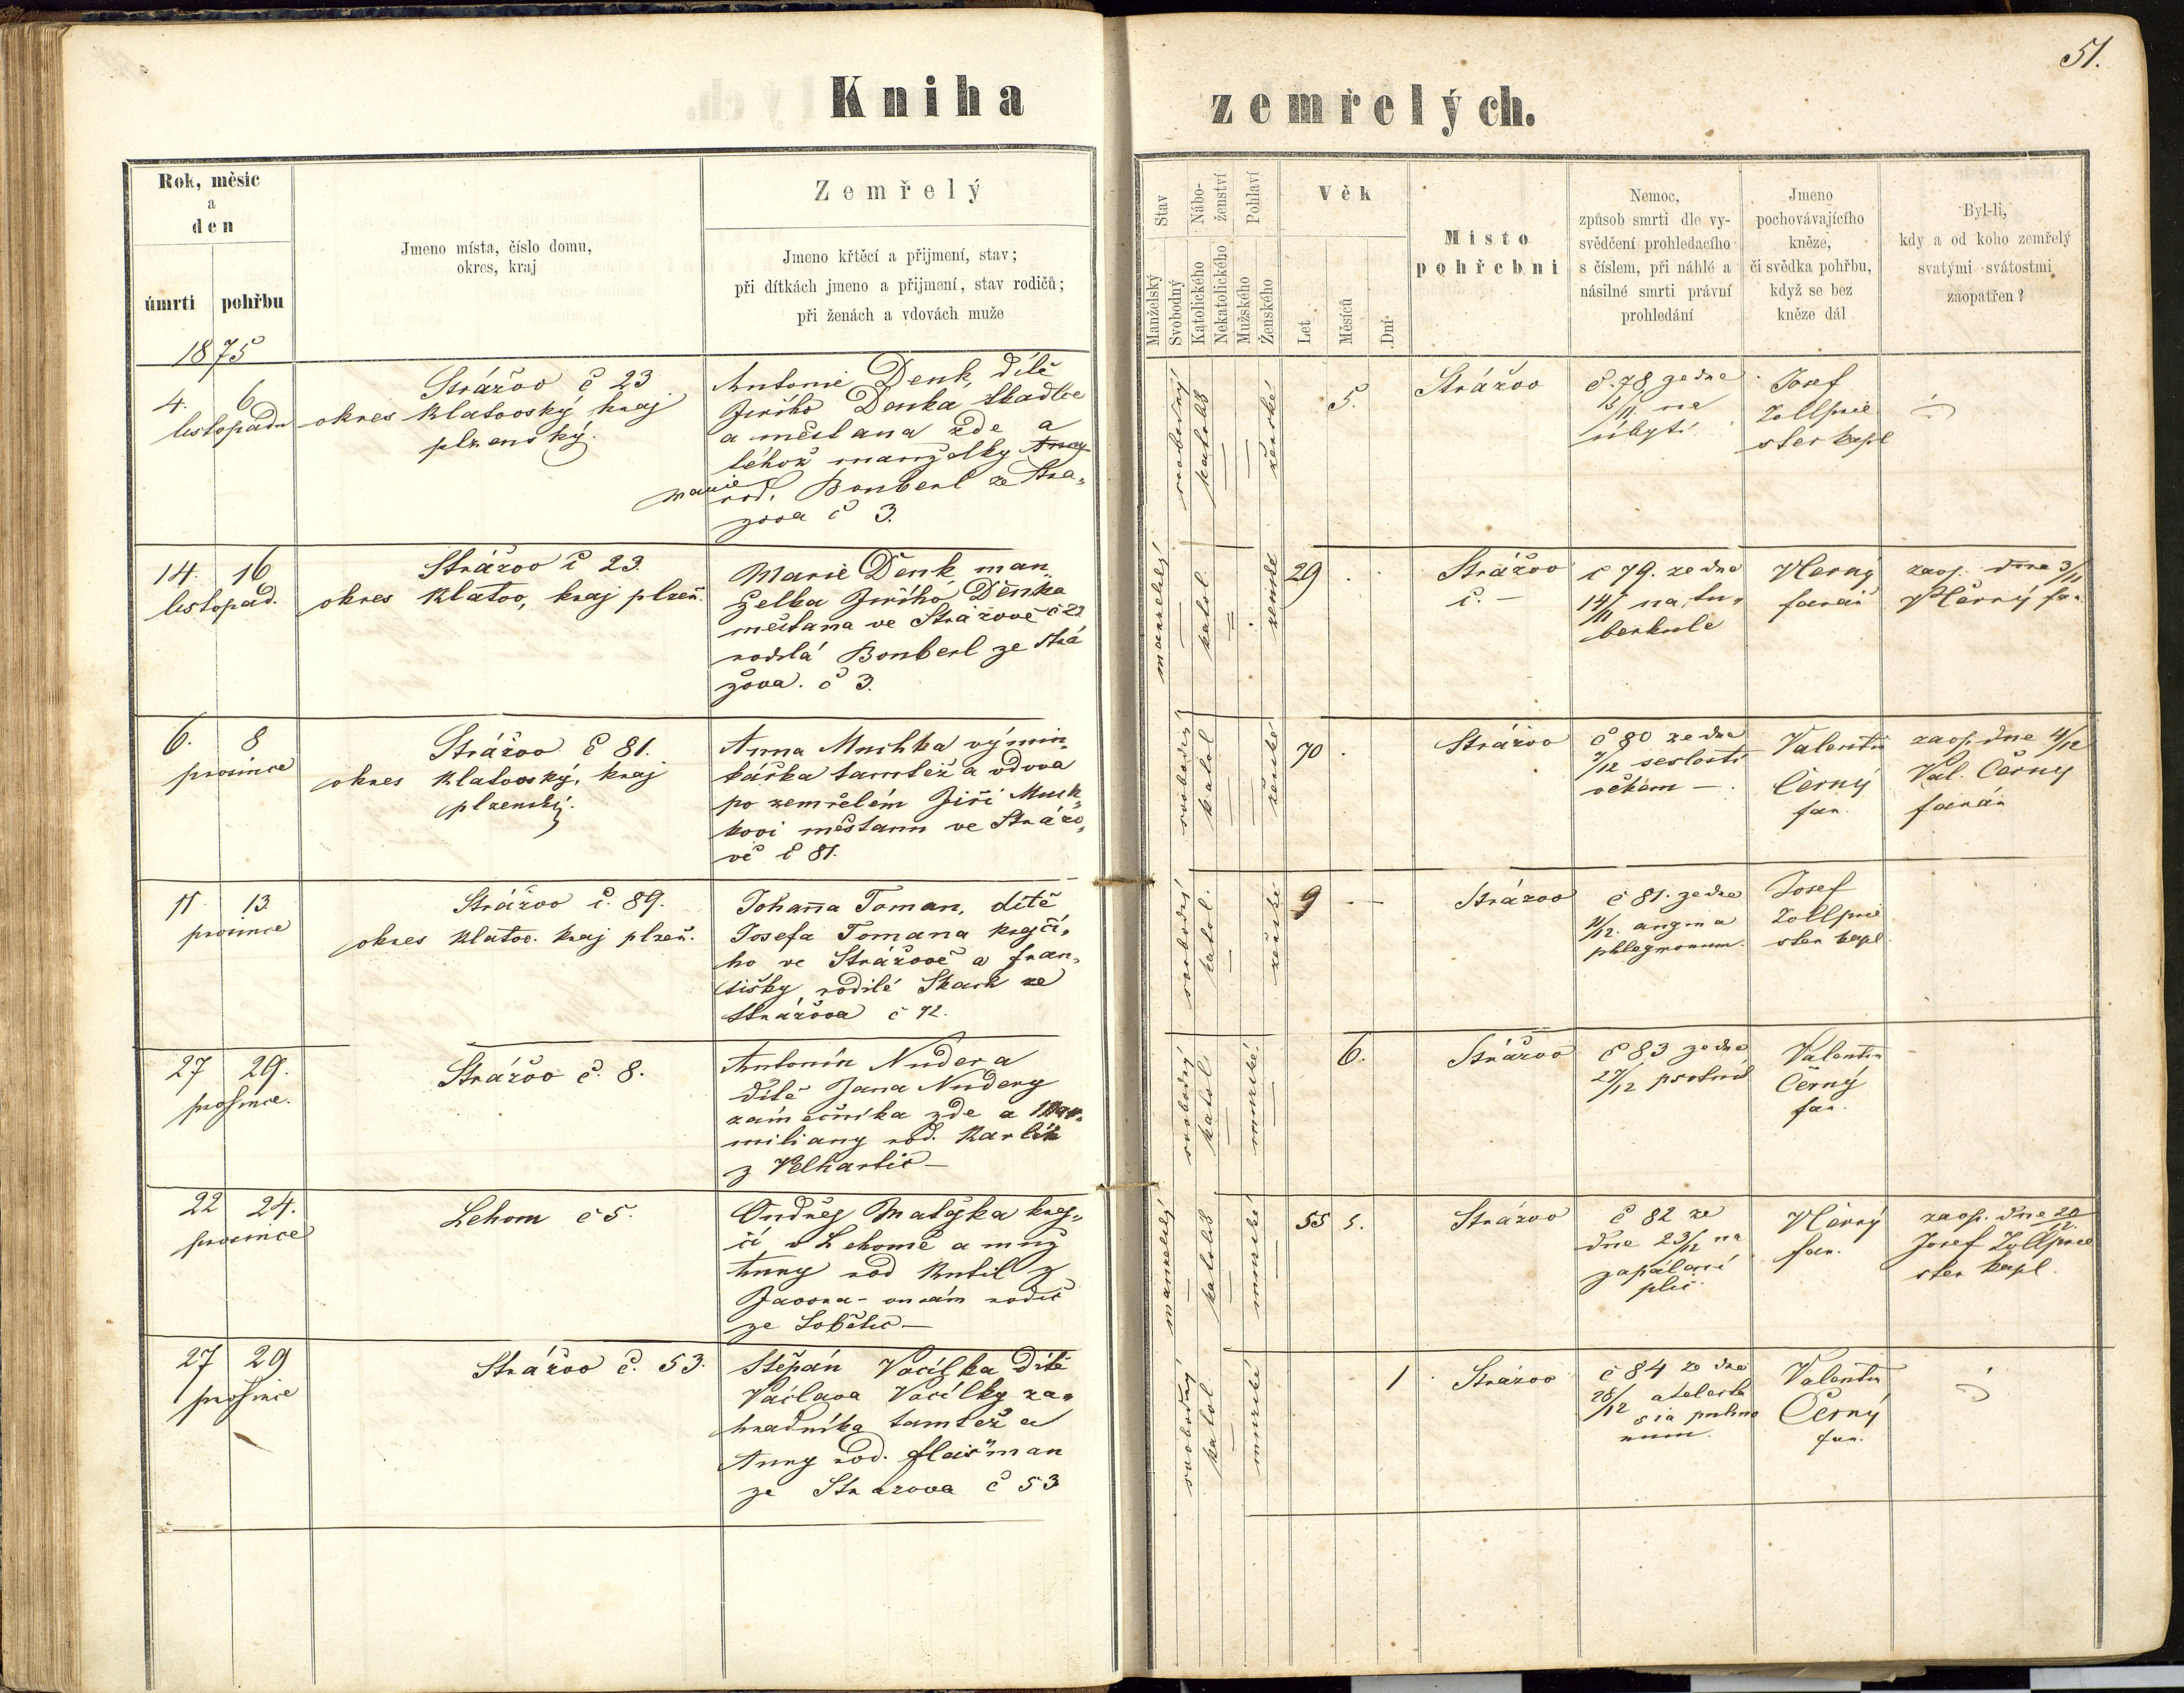 51.
Kniha zemřelých.
Rok, měsíc
a
den
úmrtí pohřbu
Jmeno místa, číslo domu,
okres, kraj
Zemřelý
Jmeno křtěcí a přijmení, stav;
při dítkách jmeno a přijmení, stav rodičů;
při ženách a vdovách muže
Stav
Manželský
Svobodný
Náboženství
Katolického
Nekatolického
Pohlaví
Mužského
Ženského
Věk
Let
Měsíců
Dní
Místo
pohřební
Nemoc,
způsob smrti dle vy-
svědčení prohledacího
s číslem, při náhlé a
násilné smrti právní
prohledání
Jmeno
pochovávajícího
kněze,
či svědka pohřbu,
když se bez
kněze dál
Byl-li,
kdy a od koho zemřelý
svatými svátostmi
zaopatřen?
1875
4. 6
listopadu
Strážov č 23
okres Klatovský kraj
plzenský.
Antonie Denk, dítě
Jiřího Denka tkadlce
a měšťana zde a
téhož manželky
Marie
rod. Bonberl ze Stra-
zova č 3.
svobodný
katolik
ženské
5.
Strážov
č. 78 ze dne
na
úbytí
Josef
Zollprie
ster kapl
14. 16
listopad.
Strážov č 23.
okres Klatov, kraj plzeň.
Marie Denk man
želka Jiřího Denka
měšťana ve Strážově č 23
rodilá Bonberl ze Strá
žova. č 3.
manželský
katol
ženské
29
Strážov
č. –
č 79. ze dne
14/11 na tu-
berkule
VČerný
farář
zaop. dne 3/11
VČerný far.
6. 8
prosince
Strážov č 81.
okres Klatovský, kraj
plzenský.
Anna Muchka výmin-
kářka tamtéž a vdova
po zemřelém Jiří Much-
kovi měšťanu ve Strážo-
vě č 81.
svobodný
katol
ženské
70
Strážov
č 80 ze dne
7/12 sešlostí
věkem –
Valentin
Černý
far.
zaop. dne 4/12
Val. Černý
farář
11. 13.
prosince
Strážov č. 89.
okres Klatov. kraj plzeň.
Johanna Toman, dítě
Josefa Tomana krejčí-
ho ve Strážově a Fran-
tišky rodilé Skach ze
Strážova č 72.
svobodný
katol.
ženské
9
Strázov
č 81. ze dne
11/12. angina
phlegmonum.
Josef
Zollprie
ster kapl.
27 29.
prosince.
Strážov č. 8.
Antonín Nudera
dítě Jana Nudery
zámečníka zde a Max-
miliany rod. Karlík
z Velhartic –
svobodný
katol.
mužské
6.
Strážov
č 83 ze dne
27/12 psotník
Valentin
Černý
far.
22 24.
prosince
Lehom č 5.
Ondřej Matějka krej-
čí v Lehomě a muž
Anny rod Kutil z
Javora – on sám rodič
ze Lobětic –
manželský
katolik
mužské
55 5.
Strázov
č 82 ze
dne 23/12 na
zapálení
plic
VČerný
far.
zaop. dne 20/12
Josef Zollprie
ster kapl.
27 29
prosince
Strážov č. 53.
Štěpán Vocílka dítě
Václava Vocílky za-
hradníka tamtéž a
Anny rod. Flaišman
ze Strazova č 53
svobodný
katol.
mužské
1
Strázov
č 84 ze dne
28/12 atelecta
sia pulmo
num.
Valentin
Černý
far.